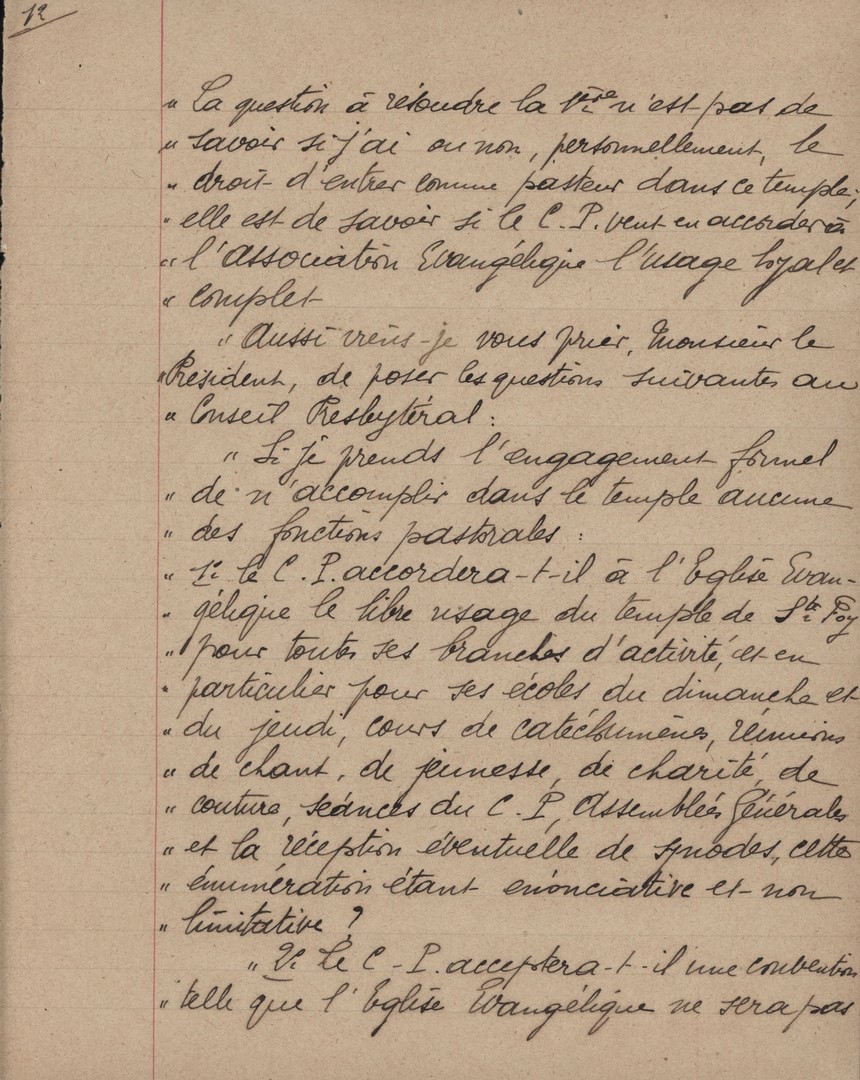 12
" La question à résoudre la 1ère n'est pas de
" savoir si j'ai ou non, personnellement, le
" droit d'entrer comme pasteur dans ce temple;
" elle est de savoir si le C. P. veut en accorder à
" l'Association Evangélique l'usage loyal et
" complet
" Aussi viens-je vous prier, Monsieur le
" Président, de poser les questions suivantes au
" Conseil Presbytéral :
" Si je prends l'engagement formel
" de n'accomplir dans le temple aucune
" des fonctions pastorales :
" 1° le C. P. accordera-t-il à l'Eglise Evan-
" gélique le libre usage du temple de Ste Foy
" pour toutes ses branches d'activité, et en
" particulier pour ses écoles du dimanche et
" du jeudi, cours de catéchumènes, réunions
" de chant, de jeunesse, de charité, de
" couture, séances du C. P, Assemblées Générales
" et la réception éventuelle de synodes, cette
" énumération étant énonciative et non
" limitative ?
" 2° Le C - P. acceptera-t-il une convention
" telle que l'Eglise Evangélique ne sera pas